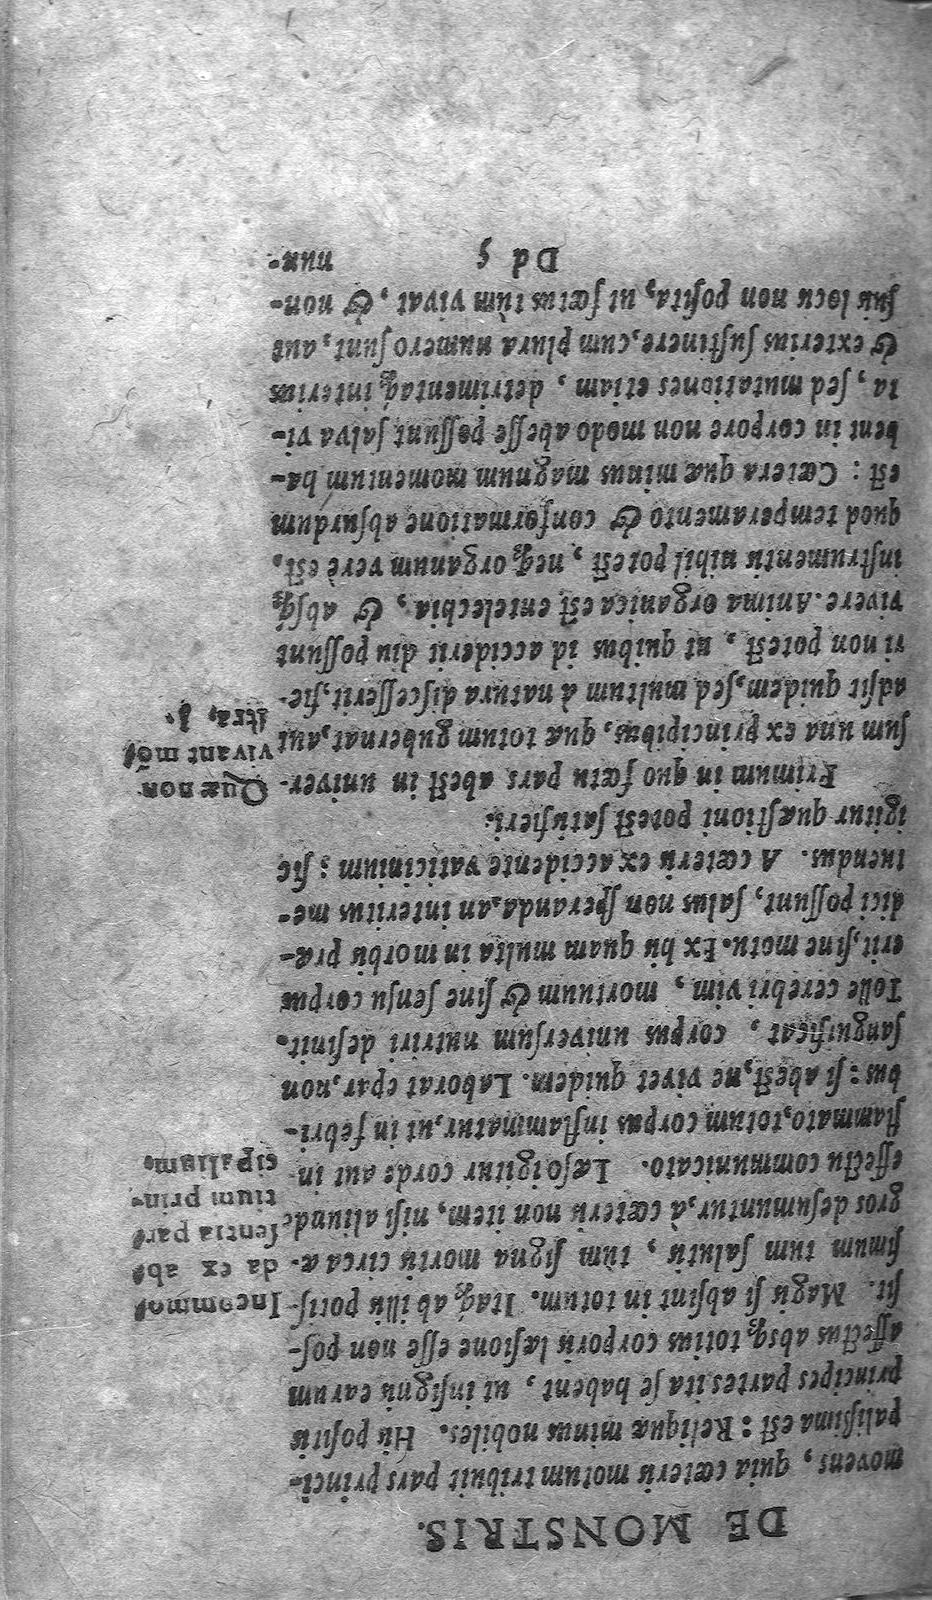 DE MONSTRIS.
movens, quia cæteris motum tribuit pars princi-
palißima est: Reliquæ minus nobiles. His positis
principes partes ita se habent, ut insignis earum
affectus absq; totius corporis læsione esse non pos-
sit. Magis si absint in totum. Itaq; ab illis potis-
simum tum salutis, tum signa mortis circa æ-
gros desumuntur, à cæteris non item, nisi aliunde
effectu communicato. Læso igitur corde aut in
flammato, totum corpus inflammatur, ut in febri-
bus: si abest, ne vivet quidem. Laborat epar, non
sanguificat, corpus universum nutriri desinit.
Tolle cerebri vim, mortuum & sine sensu corpus
erit, sine motu. Ex his quam multa in morbis præ-
dici possunt, salus non speranda, an interitus me-
tuendus. A cæteris ex accidente vaticinium: sic
igitur quæstioni potest satisfieri.
Primum in quo fœtu pars abest in univer-
sum una ex principibus, quæ totum gubernat, aut
adsit quidem, sed multum à natura discesserit, fie-
ri non potest, ut quibus id acciderit diu possunt
vivere. Anima organica est entelechia, & absq;
instrumentis nihil potest, neq; organum verè est,
quod temperamento & conformatione absurdum
est: Cætera quæ minus magnum momentum ha-
bent in corpore non modo abesse possunt salva vi-
ta, sed mutationes etiam, detrimentaq; interius
& exterius sustinere, cum plura numero sunt, aut
suis locis non posita, ut fœtus tùm vivat, & non-
Dd 5 nun-
Incommo-
da ex ab-
sentia par-
tium prin-
cipalium.
Quæ non
vivant mõ-
stra,